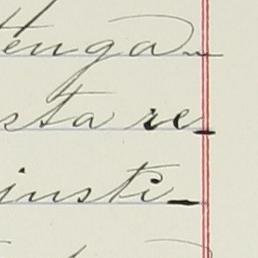 tenga
sta re_
insti_